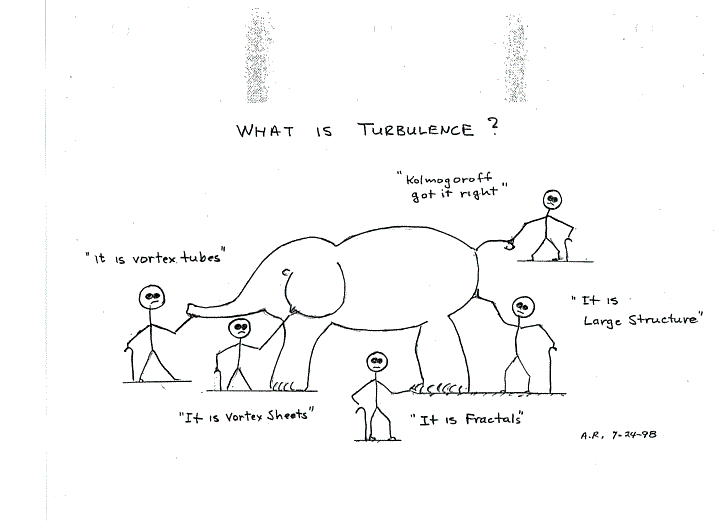 WHAT IS TURBULENCE?
"Kolmogoroff
got it right"
"it is vortex tubes"
"It is
Large Structure"
"It is Vortex Sheets"
"It is Fractals"
A.R, 7-24-98